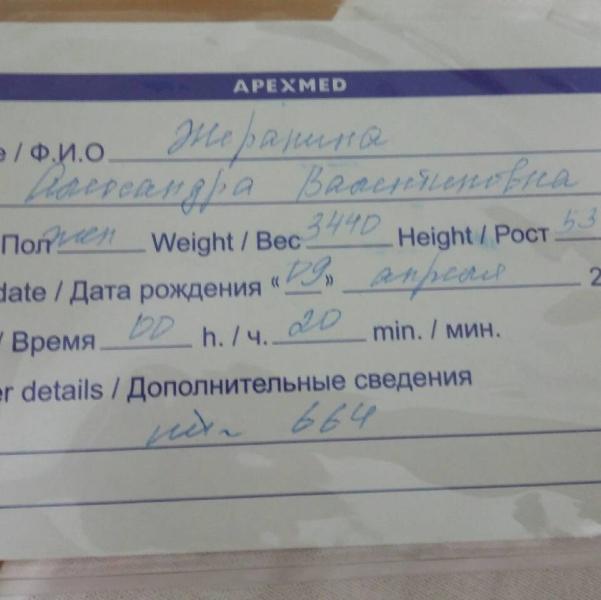 APEXMED
e / Ф.И.О Жеранина
Александра Валентиновна
Пол жен Weight / Вес 3440 Height / Рост 53
date / Дата рождения «09» апреля 2
/ Время 00 h. / ч. 20 min. / мин.
er details / Дополнительные сведения
664